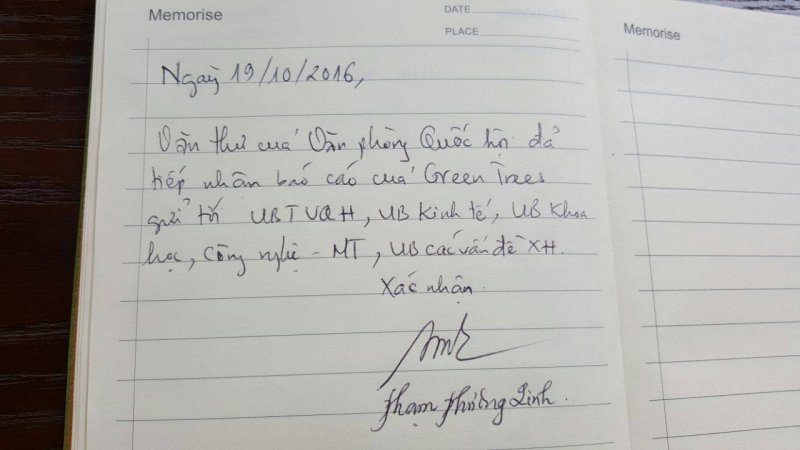 Memorise
DATE
PLACE
Memorise
Ngày 19/10/2016,
Văn thư của Văn phòng Quốc hội đã
tiếp nhận báo cáo của Green Trees
gửi tới UBTVQH, UB Kinh tế, UB Khoa
học, Công nghệ - MT, UB các vấn đề XH.
Xác nhận
Phạm Phương Linh.